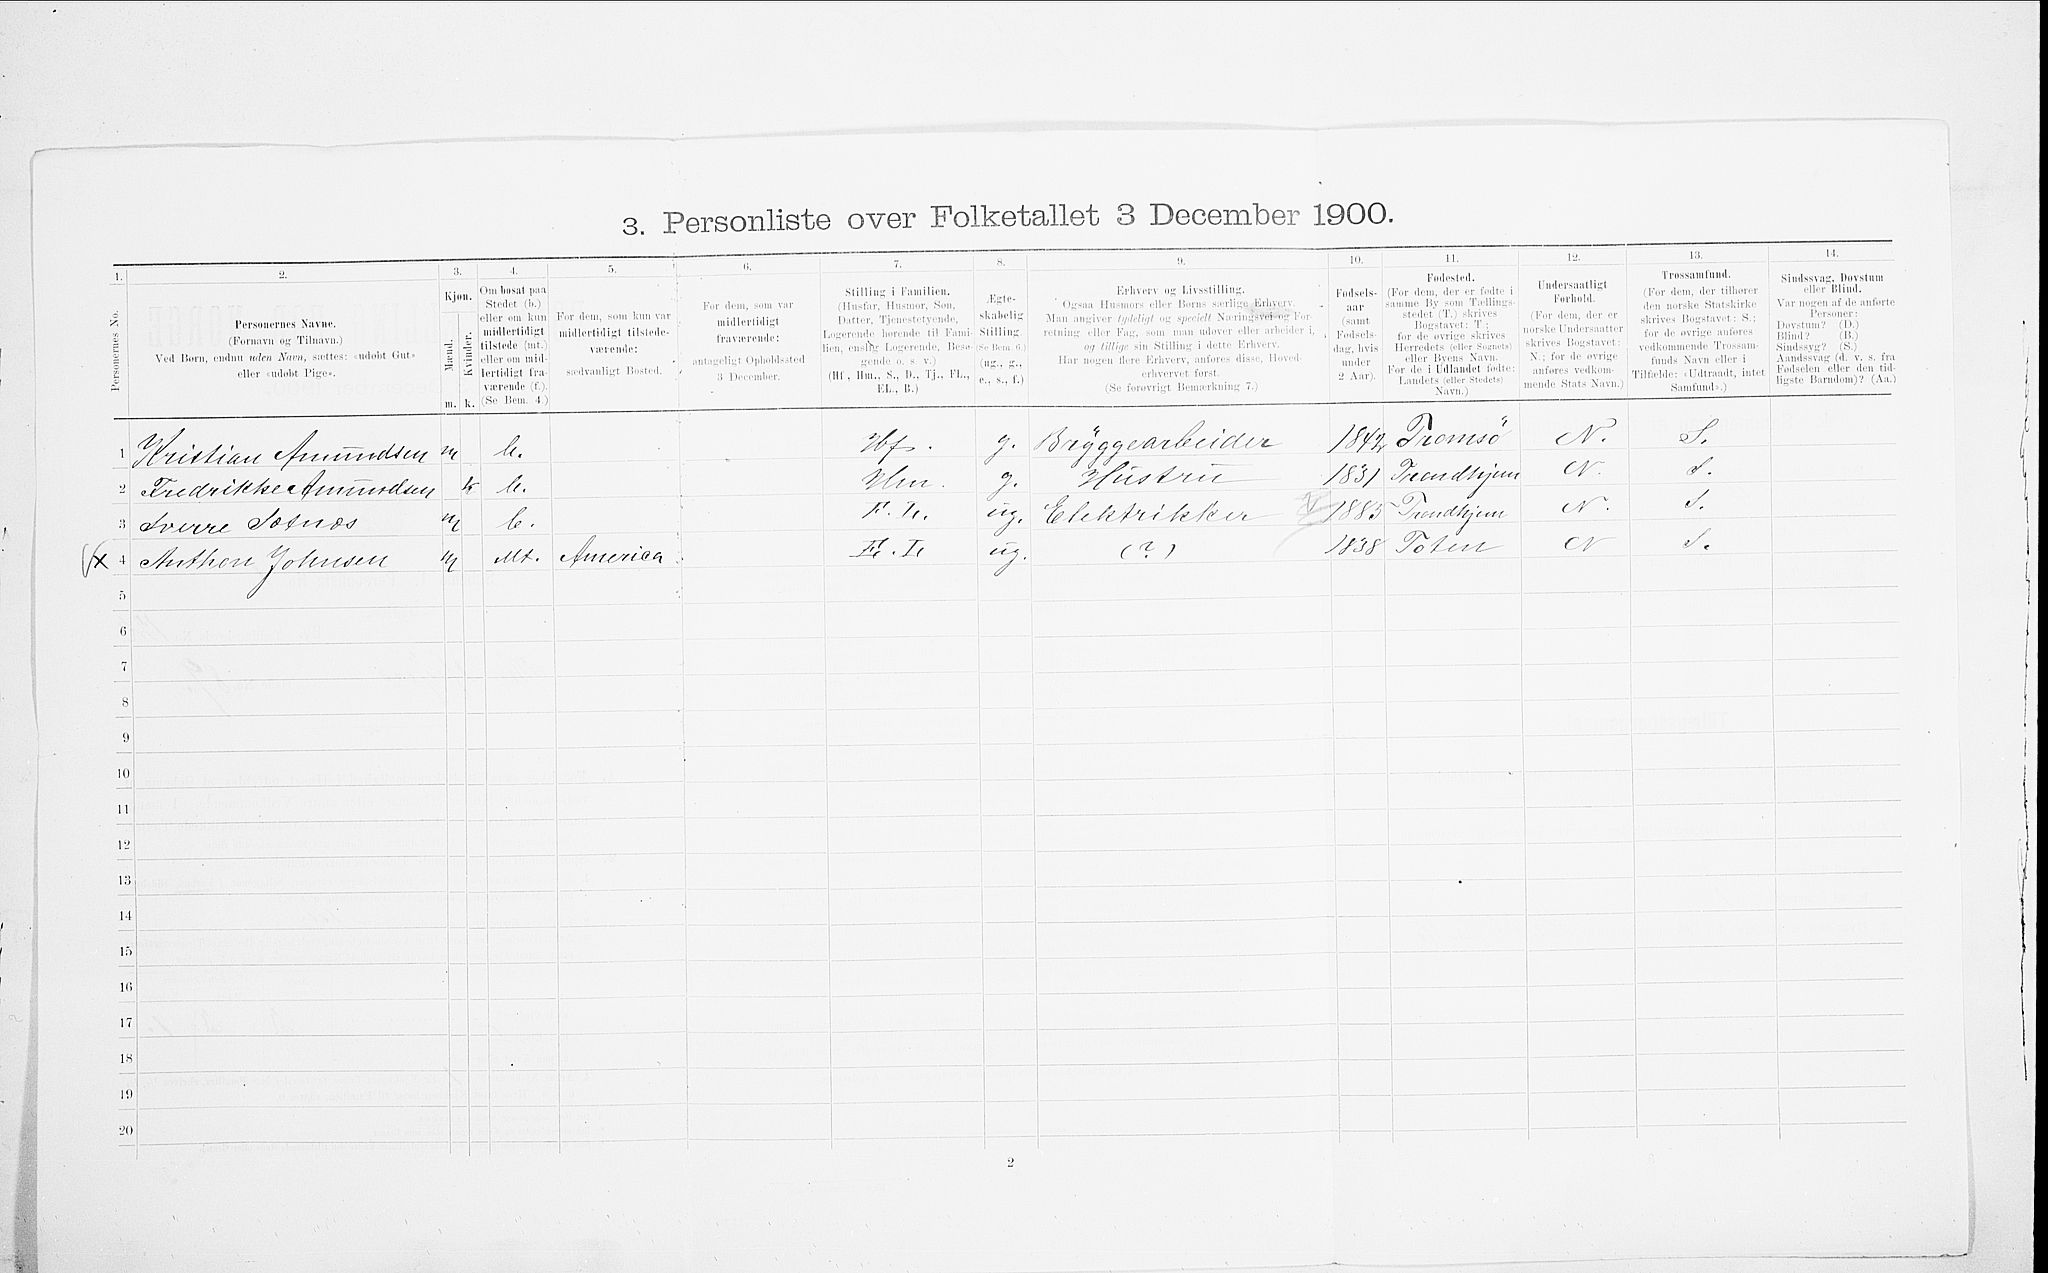 3. Personliste over Folketallet 3 December 1900.
1. 2. 3. 4. 5. 6. 7. 8. 9. 10. 11. 12. 13. 14.
Personernes No.
Personernes Navne.
(Fornavn og Tilnavn.)
Ved Børn, endnu uden Navn, sættes: «udøbt Gut»
eller «udøbt Pige».
Kjøn.
Mænd.
Kvinder.
m. k.
Om bosat paa
Stedet (b.)
eller om kun
midlertidigt
tilstede (mt.)
eller om mid-
lertidigt fra-
værende (f.).
(Se Bem. 4.)
For dem, som kun var
midlertidigt tilstede-
værende:
sædvanligt Bosted.
For dem, som var
midlertidigt
fraværende:
antageligt Opholdssted
3 December.
Stilling i Familien.
(Husfar, Husmor, Søn,
Datter, Tjenestetyende,
Logerende hørende til Fami-
lien, enslig Logerende, Besø-
gende o. s. v.)
(Hf., Hm., S., D., Tj., FL.,
EL., B.)
Ægte-
skabelig
Stilling.
(Se Bem. 6.)
(ug., g.,
e., s., f.)
Erhverv og Livsstilling.
Ogsaa Husmors eller Børns særlige Erhverv.
Man angiver tydeligt og specielt Næringsvei og For-
retning eller Fag, som man udøver eller arbeider i,
og tillige sin Stilling i dette Erhverv.
Har nogen flere Erhverv, anføres disse, Hoved-
erhvervet først.
(Se forøvrigt Bemærkning 7.)
Fødsels-
aar
(samt
Fødsels-
dag, hvis
under
2 Aar).
Fødested.
(For dem, der er fødte i
samme By som Tællings-
stedet (T.) skrives
Bogstavet: T.;
for de øvrige skrives
Herredets (eller Sognets)
eller Byens Navn.
For de i Udlandet fødte:
Landets (eller Stedets)
Navn.)
Undersaatligt
Forhold.
(For dem, der er
norske Undersaatter
skrives Bogstavet:
N.; for de øvrige
anføres vedkom-
mende Stats Navn.)
Trossamfund.
(For dem, der tilhører
den norske Statskirke
skrives Bogstavet: S.;
for de øvrige anføres
vedkommende Trossam-
funds Navn eller i
Tilfælde: «Udtraadt, intet
Samfund».)
Sindssvag, Døvstum
eller Blind.
Var nogen af de anførte
Personer:
Døvstum? (D.)
Blind? (B.)
Sindssyg? (S.)
Aandssvag (d. v. s. fra
Fødselen eller den tid-
ligste Barndom)? (Aa.)
1 Kristian Amundsen m b. Hf. g. Bryggearbeider 1842 Tromsö N. S.
2 Fredrikke Amundsen k b. Hm. g. Hustru 1831 Trondhjem N. S.
3 Sverre Sætnæs m b. F. L. ug. Elektrikker 1885 Trondhjem N. S.
4 Anthon Johnsen m Mt. America ug. (?) 1838 Toten N S.
5
6
7
8
9
10
11
12
13
14
15
16
17
18
19
20
2